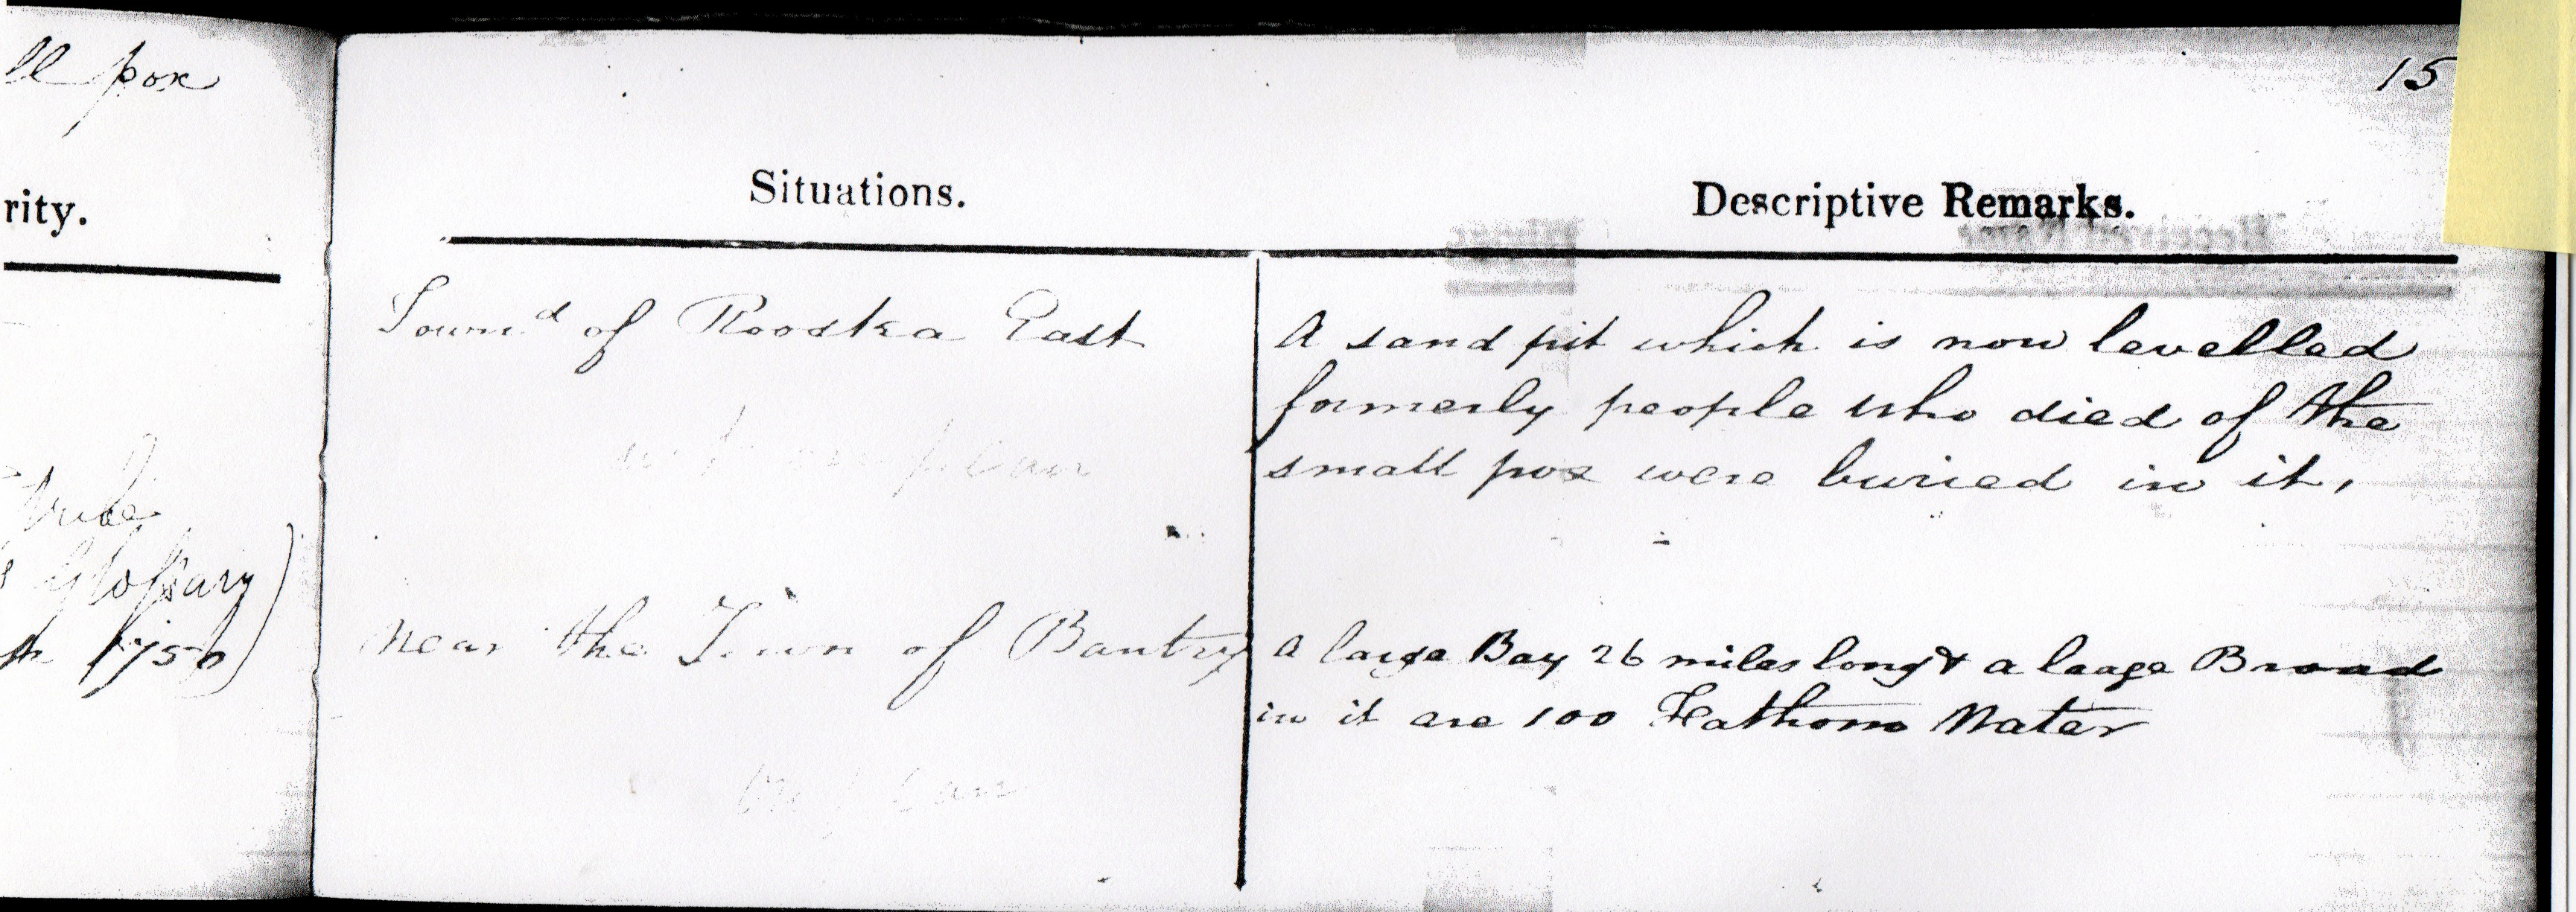 ll pox
rity.
Tribe
Glossary)
1750)
15
Situations.
Descriptive Remarks.
Townd of Rooska East
not on plan
A sand pit which is now levelled
formerly people who died of the
small pox were buried in it,
near the Town of Bantry
on plan
A large Bay 26 miles long & a leage Broad
in it are 100 Fathom Water